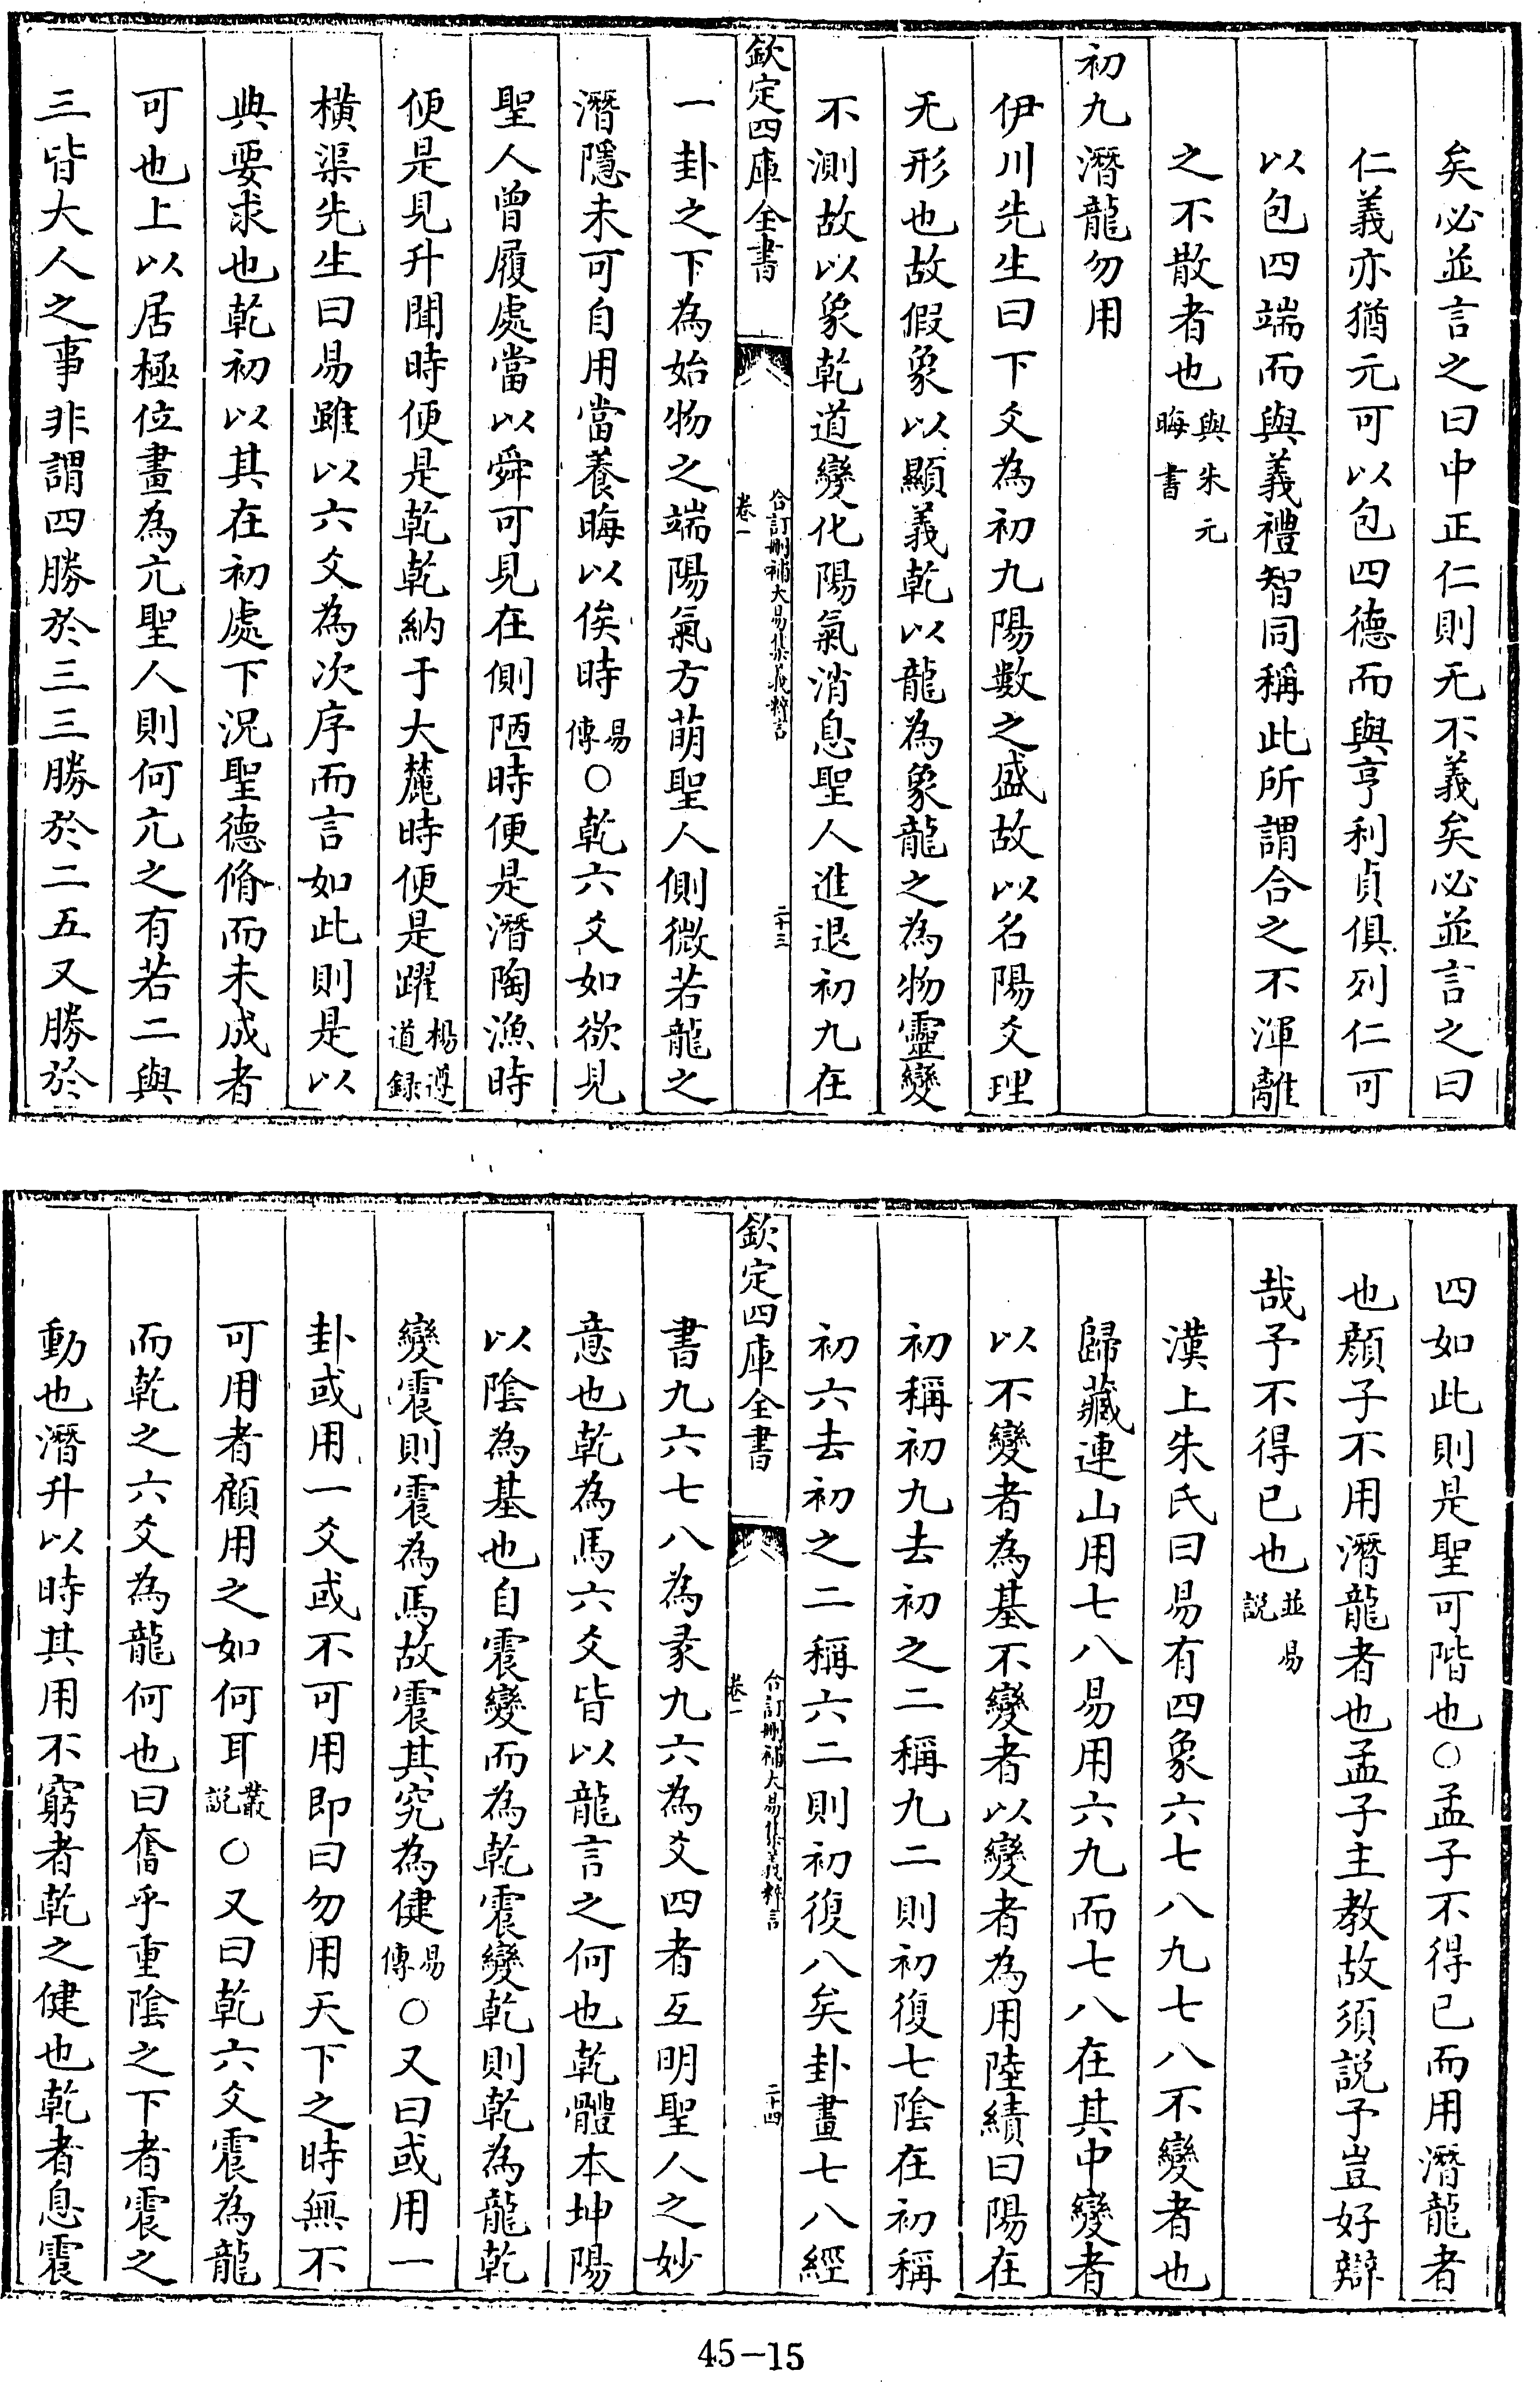 矣必並言之曰中正仁則无不義矣必並言之曰
仁義亦猶元可以包四德而與亨利貞俱列仁可
以包四端而與義禮智同稱此所謂合之不渾離
之不散者也與朱元晦書
初九潛龍勿用
伊川先生曰下爻為初九陽數之盛故以名陽爻理
无形也故假象以顯義乾以龍為象龍之為物靈變
不測故以象乾道變化陽氣消息聖人進退初九在
欽定四庫全書
合訂刪補大易集義粹言
卷一
二十三
一卦之下為始物之端陽氣方萌聖人側微若龍之
潛隱未可自用當養晦以俟時易傳○乾六爻如欲見
聖人曾履處當以舜可見在側陋時便是潛陶漁時
便是見升聞時便是乾乾納于大麓時便是躍楊遵道録
橫渠先生曰易雖以六爻為次序而言如此則是以
典要求也乾初以其在初處下況聖德脩而未成者
可也上以居極位畫為亢聖人則何亢之有若二與
三皆大人之事非謂四勝於三三勝於二五又勝於
四如此則是聖可階也○孟子不得已而用潛龍者
也顏子不用潛龍者也孟子主教故須説予豈好辯
哉予不得已也並易説
漢上朱氏曰易有四象六七八九七八不變者也
歸藏連山用七八易用六九而七八在其中變者
以不變者為基不變者以變者為用陸績曰陽在
初稱初九去初之二稱九二則初復七陰在初稱
初六去初之二稱六二則初復八矣卦畫七八經
欽定四庫全書
合訂刪補大易集義粹言
卷一
二十四
書九六七八為彖九六為爻四者互明聖人之妙
意也乾為馬六爻皆以龍言之何也乾體本坤陽
以陰為基也自震變而為乾震變乾則乾為龍乾
變震則震為馬故震其究為健易傳○又曰或用一
卦或用一爻或不可用即曰勿用天下之時無不
可用者顧用之如何耳叢説○又曰乾六爻震為龍
而乾之六爻為龍何也曰奮乎重陰之下者震之
動也潛升以時其用不窮者乾之健也乾者息震
45-15